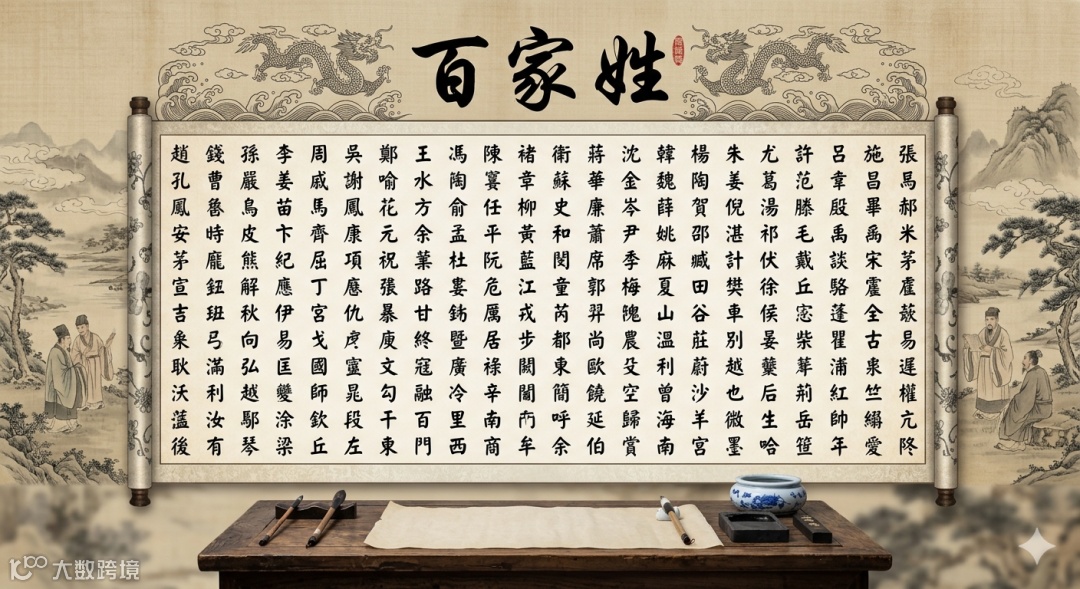 百家姓
趙錢孫李周吳鄭王馮陳褚衛蔣沈韓楊朱尤許呂施張
孔曹嚴姜戚謝喻水陶章蘇華金魏陶姜葛范韋昌馬
鳳魯鳥苗馬鳳花方俞任柳史廉岑薛賀倪湯滕殷畢郝
安時皮卞齊康元余孟平黃和蕭尹姚邵湛祁毛禹米
茅龐熊紀屈項祝葉杜阮藍閔席季麻臧計伏戴談宋茅
宣鈕解應丁應張路婁危江童郭梅夏田樊徐丘駱霍霍
吉班秋伊宮仇暴甘厲戎芮羿隗山谷車侯宓蓬全
弓向易戈虎庾終暨居步都尚農溫莊別晏柴瞿古易
耿滿弘匡國文寇廣祿闕東歐殳利蔚越浦泉遲
沃利越變師晁勾融冷辛簡饒空曾沙也后荊紅竺權
汝鄢涂欽段干百里南呼延歸海羊微生岳帥亢
後有琴梁丘左東門西商牟余伯賞南宮墨哈笪年愛
大数跨境